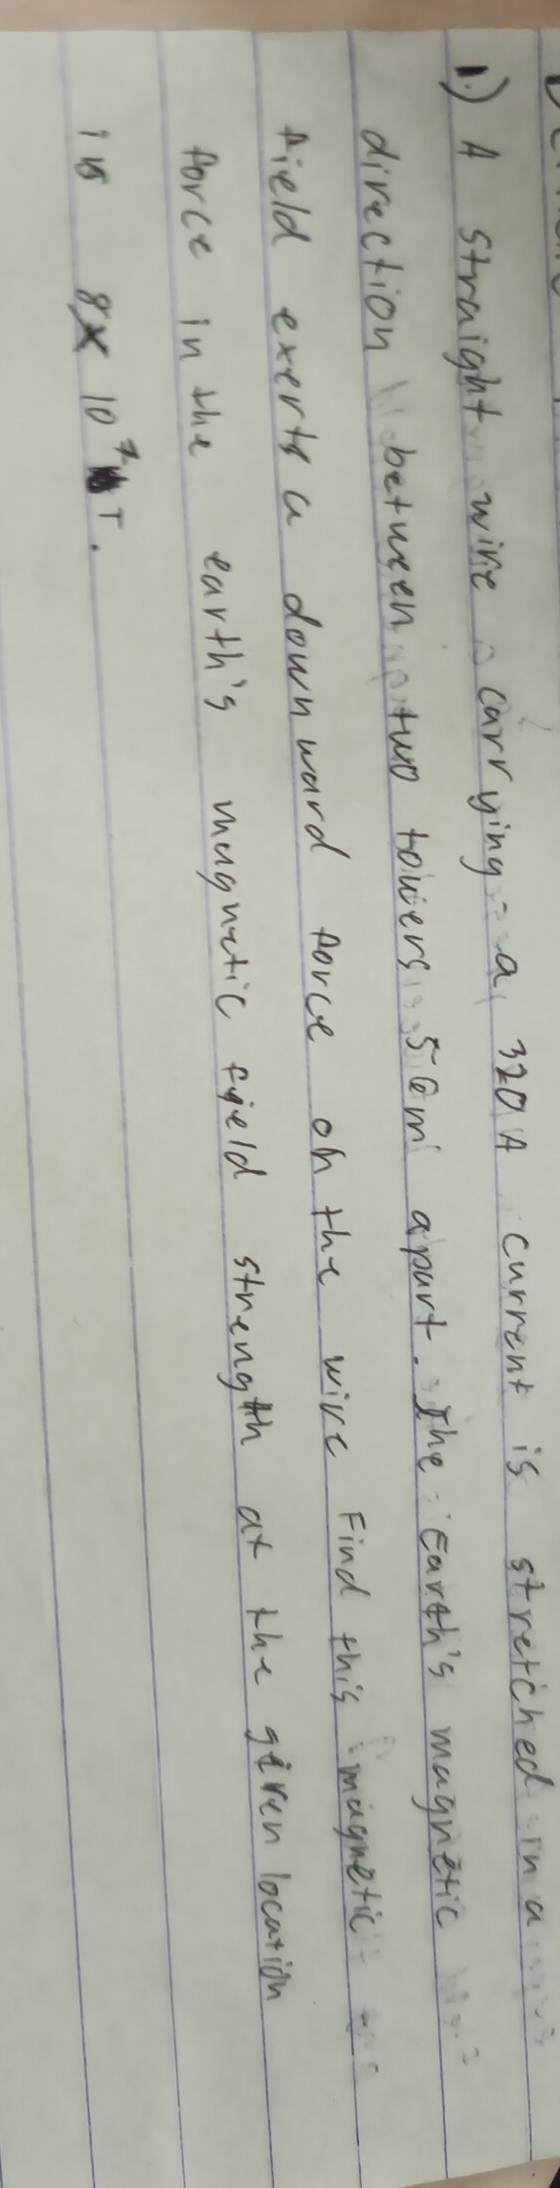 1.) A straight wire carrying a 320A current is stretched in a
direction between two towers 56m apart. The Earth's magnetic
field exerts a downward force on the wire Find this magnetic
force in the earth's magnetic field strength at the given location
is 8x10⁷ T.